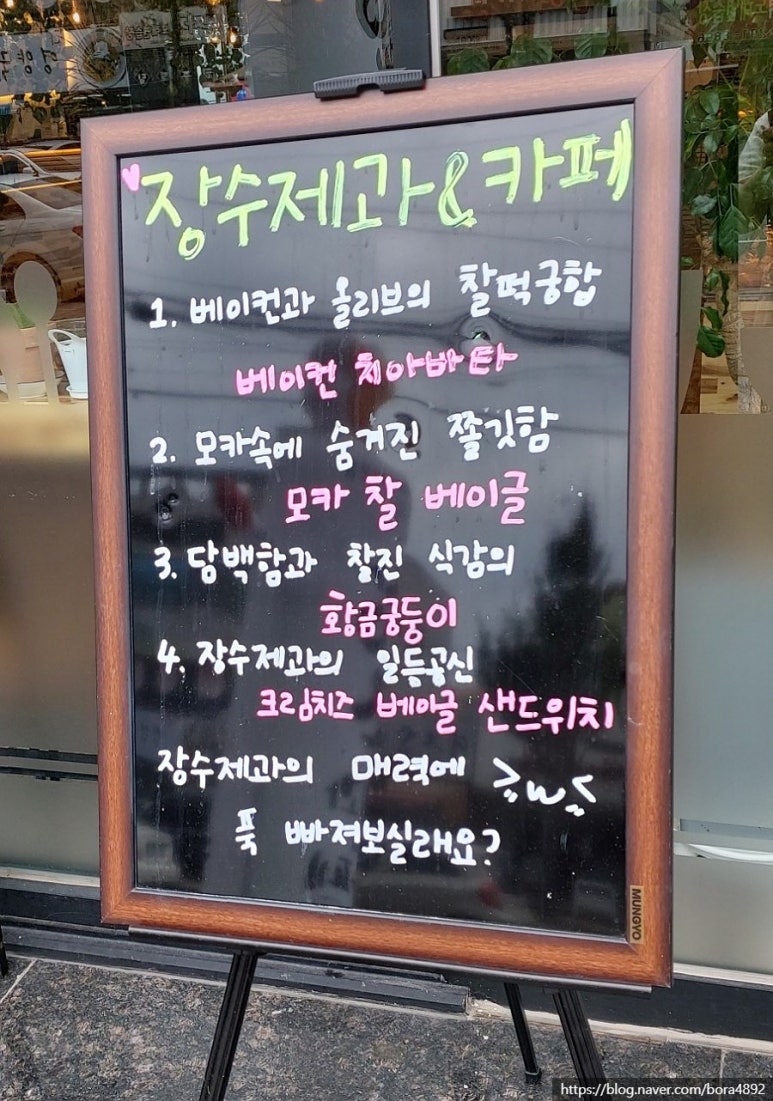 장수제과&카페
1. 베이컨과 올리브의 찰떡궁합
베이컨 치아바타
2. 모카속에 숨겨진 쫄깃함
모카 찰 베이글
3. 담백함과 찰진 식감의
황금궁둥이
4. 장수제과의 일등공신
크림치즈 베이글 샌드위치
장수제과의 매력에 >w<
푹 빠져보실래요?
MUNGYO
https://blog.naver.com/bora4892